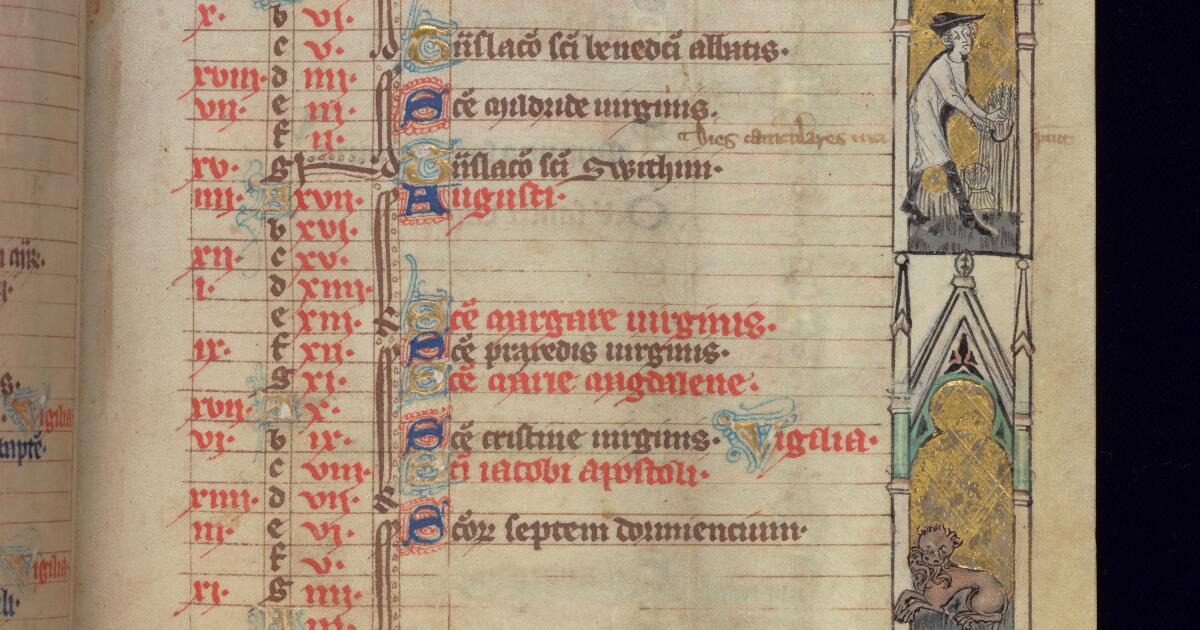 x. b vi.
c v. Tñslacō scī benedcī abbatis.
xviii. d iiii.
vii. e iii. Scē mildride uirginis.
f ii. dies caniculares
xv. g Tñslacō scī Swithun.
iiii. A xvii. Augusti.
b xvi.
xii. c xv.
i. d xiiii.
e xiii. Scē margare uirginis.
ix. f xii. Scē praxedis uirginis.
g xi. Scē marie magdalene.
xvii. A x.
vi. b ix. Scē cristine uirginis. Vigilia.
c viii. Scī iacobi apostoli.
xiiii. d vii.
iii. e vi. Scōꝝ septem dormiencium.
f v.
xi. g iiii.
A iii.
Vigilia